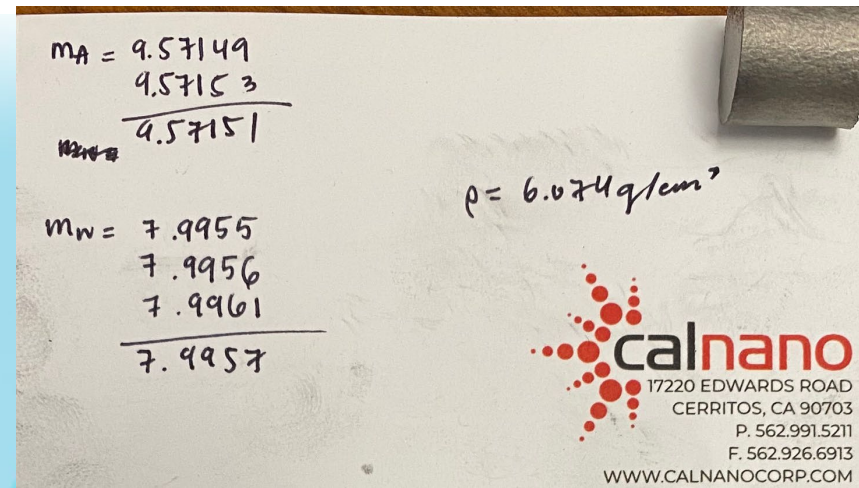 mA = 9.57149
9.57153
9.57151
mW = 7.9955
7.9956
7.9961
7.9957
ρ = 6.074 g/cm³
calnano
17220 EDWARDS ROAD
CERRITOS, CA 90703
P. 562.991.5211
F. 562.926.6913
WWW.CALNANOCORP.COM